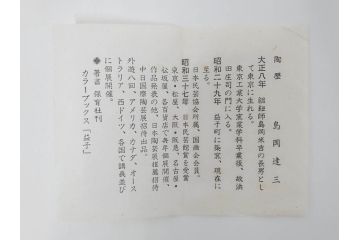 陶歴　島岡達三
大正八年　組紐師島岡米吉の長男とし
て東京に生れる。
東京工業大学窯業学科卒業後、故浜
田庄司の門に入る。
昭和二十九年　益子町に築窯、現在に
至る。
日本民芸協会所属、国画会会員。
昭和三十七年　日本民芸館賞を受賞
東京・松屋、大阪・阪急、名古屋・
松坂屋、各百貨店で毎年個展開催、
作品発表の他、日本陶芸展推薦招待
中日国際陶芸展招待出品。
外遊八回、アメリカ、カナダ、オース
トラリア、西ドイツ、各国で講義並び
に個展開催。
◆著書　保育社刊
カラーブックス「益子」